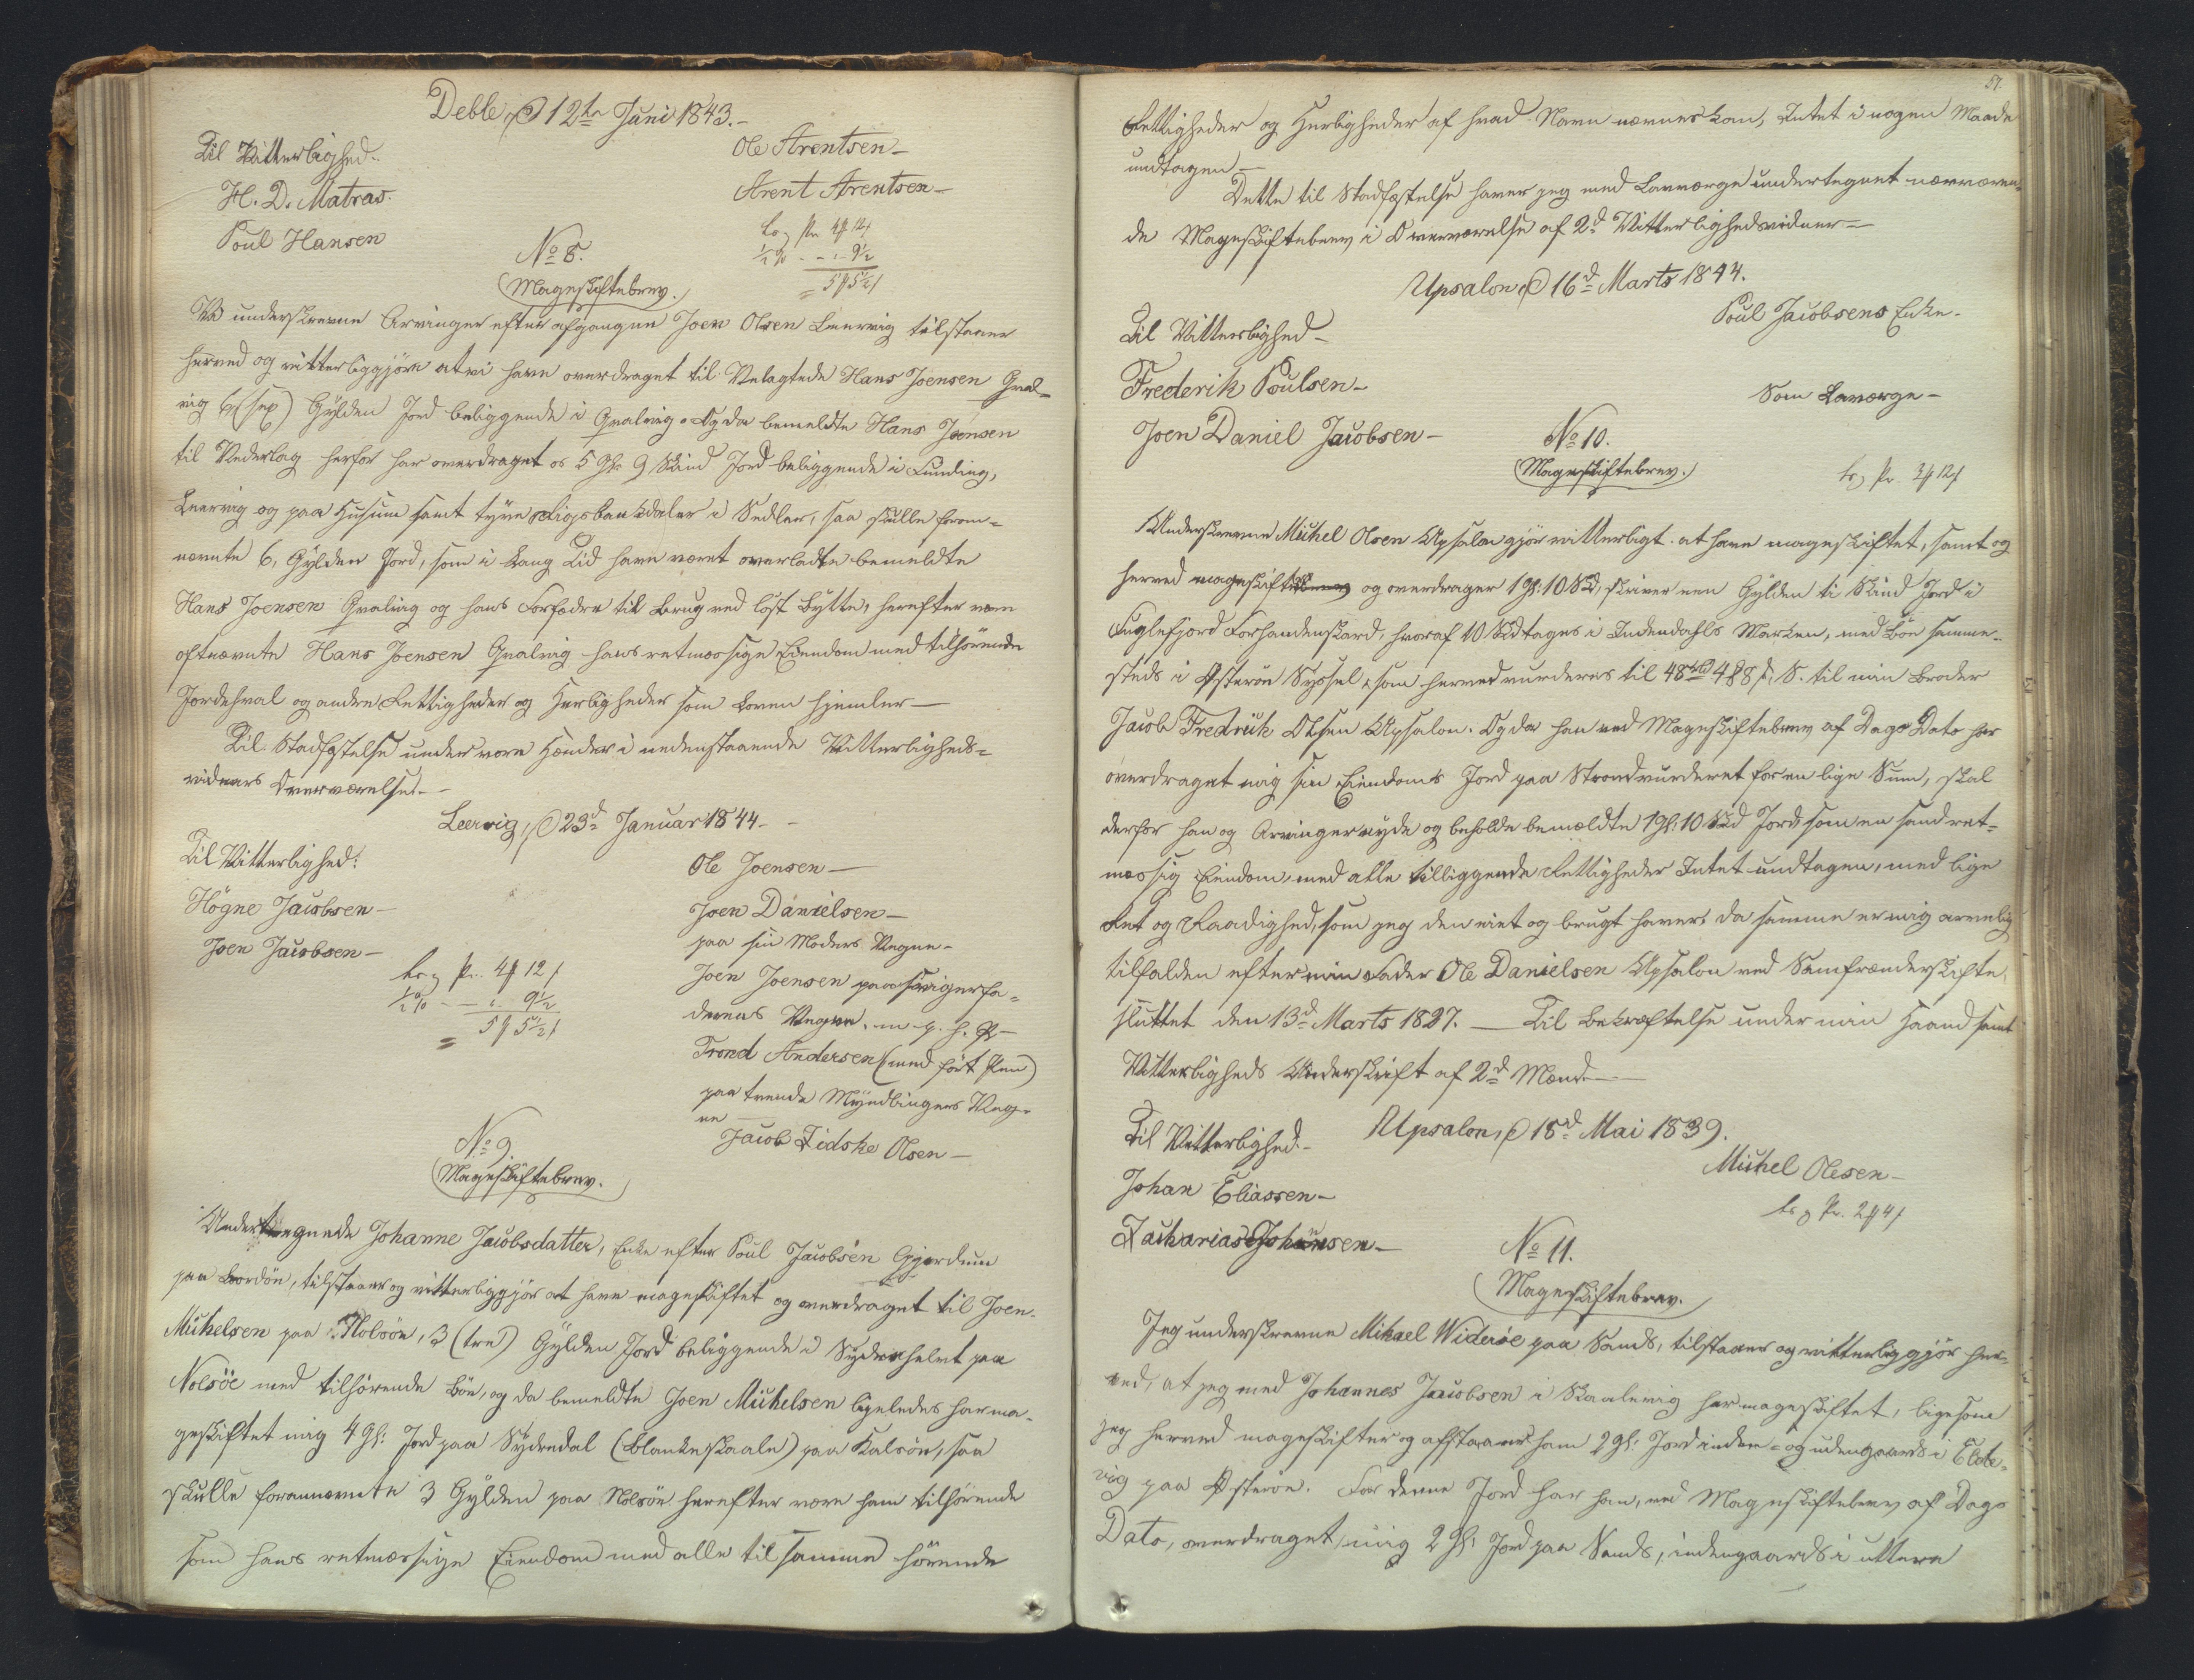 Deble, d 12te Juni 1843.-
Til Vitterlighed.
H. D. Matras.
Poul Hansen
Ole Arentsen-
Arent Arentsen-
No 8.
Mageskiftebrev.
½% - - " 9½
5 5½
Vi underskrevne Arvinger efter afgangne Joen Olsen Leervig tilstaaer
herved og vitterliggjøre at vi have overdraget til Velagtede Hans Joensen Qval-
vig 6 (sex) Gylden Jord beliggende i Qvalvig. Og da bemeldte Hans Joensen
til Vederlag herfor har overdraget os 5 Gl. 9 Skind Jord beliggende i Funding,
Leervig og paa Husum samt tyve Rigsbankdaler i Sedler, saa skulle foran-
nævnte 6, Gylden Jord, som i lang Tid have været overladte bemeldte
Hans Joensen Qvalvig og hans Forfædre til Brug ved løst Bytte, herefter være
oftnævnte Hans Joensen Qvalvig hans retmæssige Eiendom med tilhørende
Jordehval og andre Rettigheder og Herligheder som Loven hjemler-
Til Stadfæstelse under vore Hænder i nedenstaaende Vitterligheds-
vidners Overværelse.-
Leervig, d 23d Januar 1844-
Til Vitterlighed:
Högne Jacobsen-
Joen Jacobsen-
Ole Joensen-
Joen Danielsen-
paa sin Moders Vegne-
Joen Joensen paa Svigerfa-
derens Vegne. m. p. h. P-
Trond Andersen (med ført Pen)
paa trende Myndlingers Veg-
ne
Jacob Zidske Olsen-
½% - - " 9½
5 5½
No 9.
Mageskiftebrev.
Undertegnede Johanne Jacobsdatter, Enke efter Poul Jacobsen Gjerdum
paa Bordøn, tilstaaer og vitterliggjør at have mageskiftet og overdraget til Joen
Michelsen paa Nolsön, 3 (tre) Gylden Jord beliggende i Sydenhelvt paa
Nolsöe med tilhørende Bøe, og da bemeldte Joen Michelsen ligeledes har ma-
geskiftet mig 4 Gl: Jord paa Sydredal (Blankeskaale) paa Kalsön, saa
skulle forannævnte 3 Gylden paa Nolsön herefter være ham tilhørende
som hans retmæssige Eiendom med alle til samme hørende
57.
Rettigheder og Herligheder af hvad Navn nævnes kan, Intet i nogen Maade
undtagen-
Dette til Stadfæstelse haver jeg med Lavværge undertegnet nærværen-
de Mageskiftebrev i Overværelse af 2d Vitterlighedsvidner-
Upsalon d 16d Marts 1844.
Til Vitterlighed-
Frederik Poulsen-
Joen Daniel Jacobsen-
Poul Jacobsens Enke-
Som Laværge-
No 10.
Mageskiftebrev.
Underskrevne Michel Olsen Upsalon gjør vitterligt at have mageskiftet, samt og
herved mageskifter og overdrager 1 Gl: 10 Skd, skriver een Gylden ti Skind Jord i
Fuglefjord Forhandenskard, hvoraf 10 Skd tages i Indendahls Marken, med Bøe samme-
steds i Østerøe Syssel, som herved vurderes til 48 Rbd 4 8 S. til min Broder
Jacob Fredrick Olsen Upsalon. Og da han ved Mageskiftebrev af Dags Dato har
overdraget mig sin Eiendoms Jord paa Strond vurderet for en lige Sum, skal
derfor han og Arvinger nyde og beholde bemeldte 1 Gl: 10 Skd Jord som en sand ret-
mæssig Eiendom, med alle tilliggende Rettigheder Intet undtagen, med lige
Ret og Raadighed, som jeg den eiet og brugt haver, da samme er mig arvelig
tilfalden efter min Fader Ole Danielsen Upsalon ved Samfrændeskifte,
sluttet den 13d Marts 1827.- Til Bekræftelse under min Haand samt
Vitterligheds Underskrift af 2d Mænd-
Upsalon, d 18d Mai 1839.
Til Vitterlighed-
Johan Eliassen-
Zacharias Johansen-
Michel Olesen-
No 11.
Mageskiftebrev.
Jeg underskrevne Mikael Wideröe paa Sands, tilstaaer og vitterliggjør her-
ved, at jeg med Johannes Jacobsen i Skaalevig har mageskiftet, ligesom
jeg herved mageskifter og afstaaer ham 2 Gl: Jord inden- og udengaards i Elde-
vig paa Østerøe. For denne Jord har han, ved Mageskiftebrev af Dags
Dato, overdraget mig 2 Gl: Jord paa Sands, indengaards i uttere